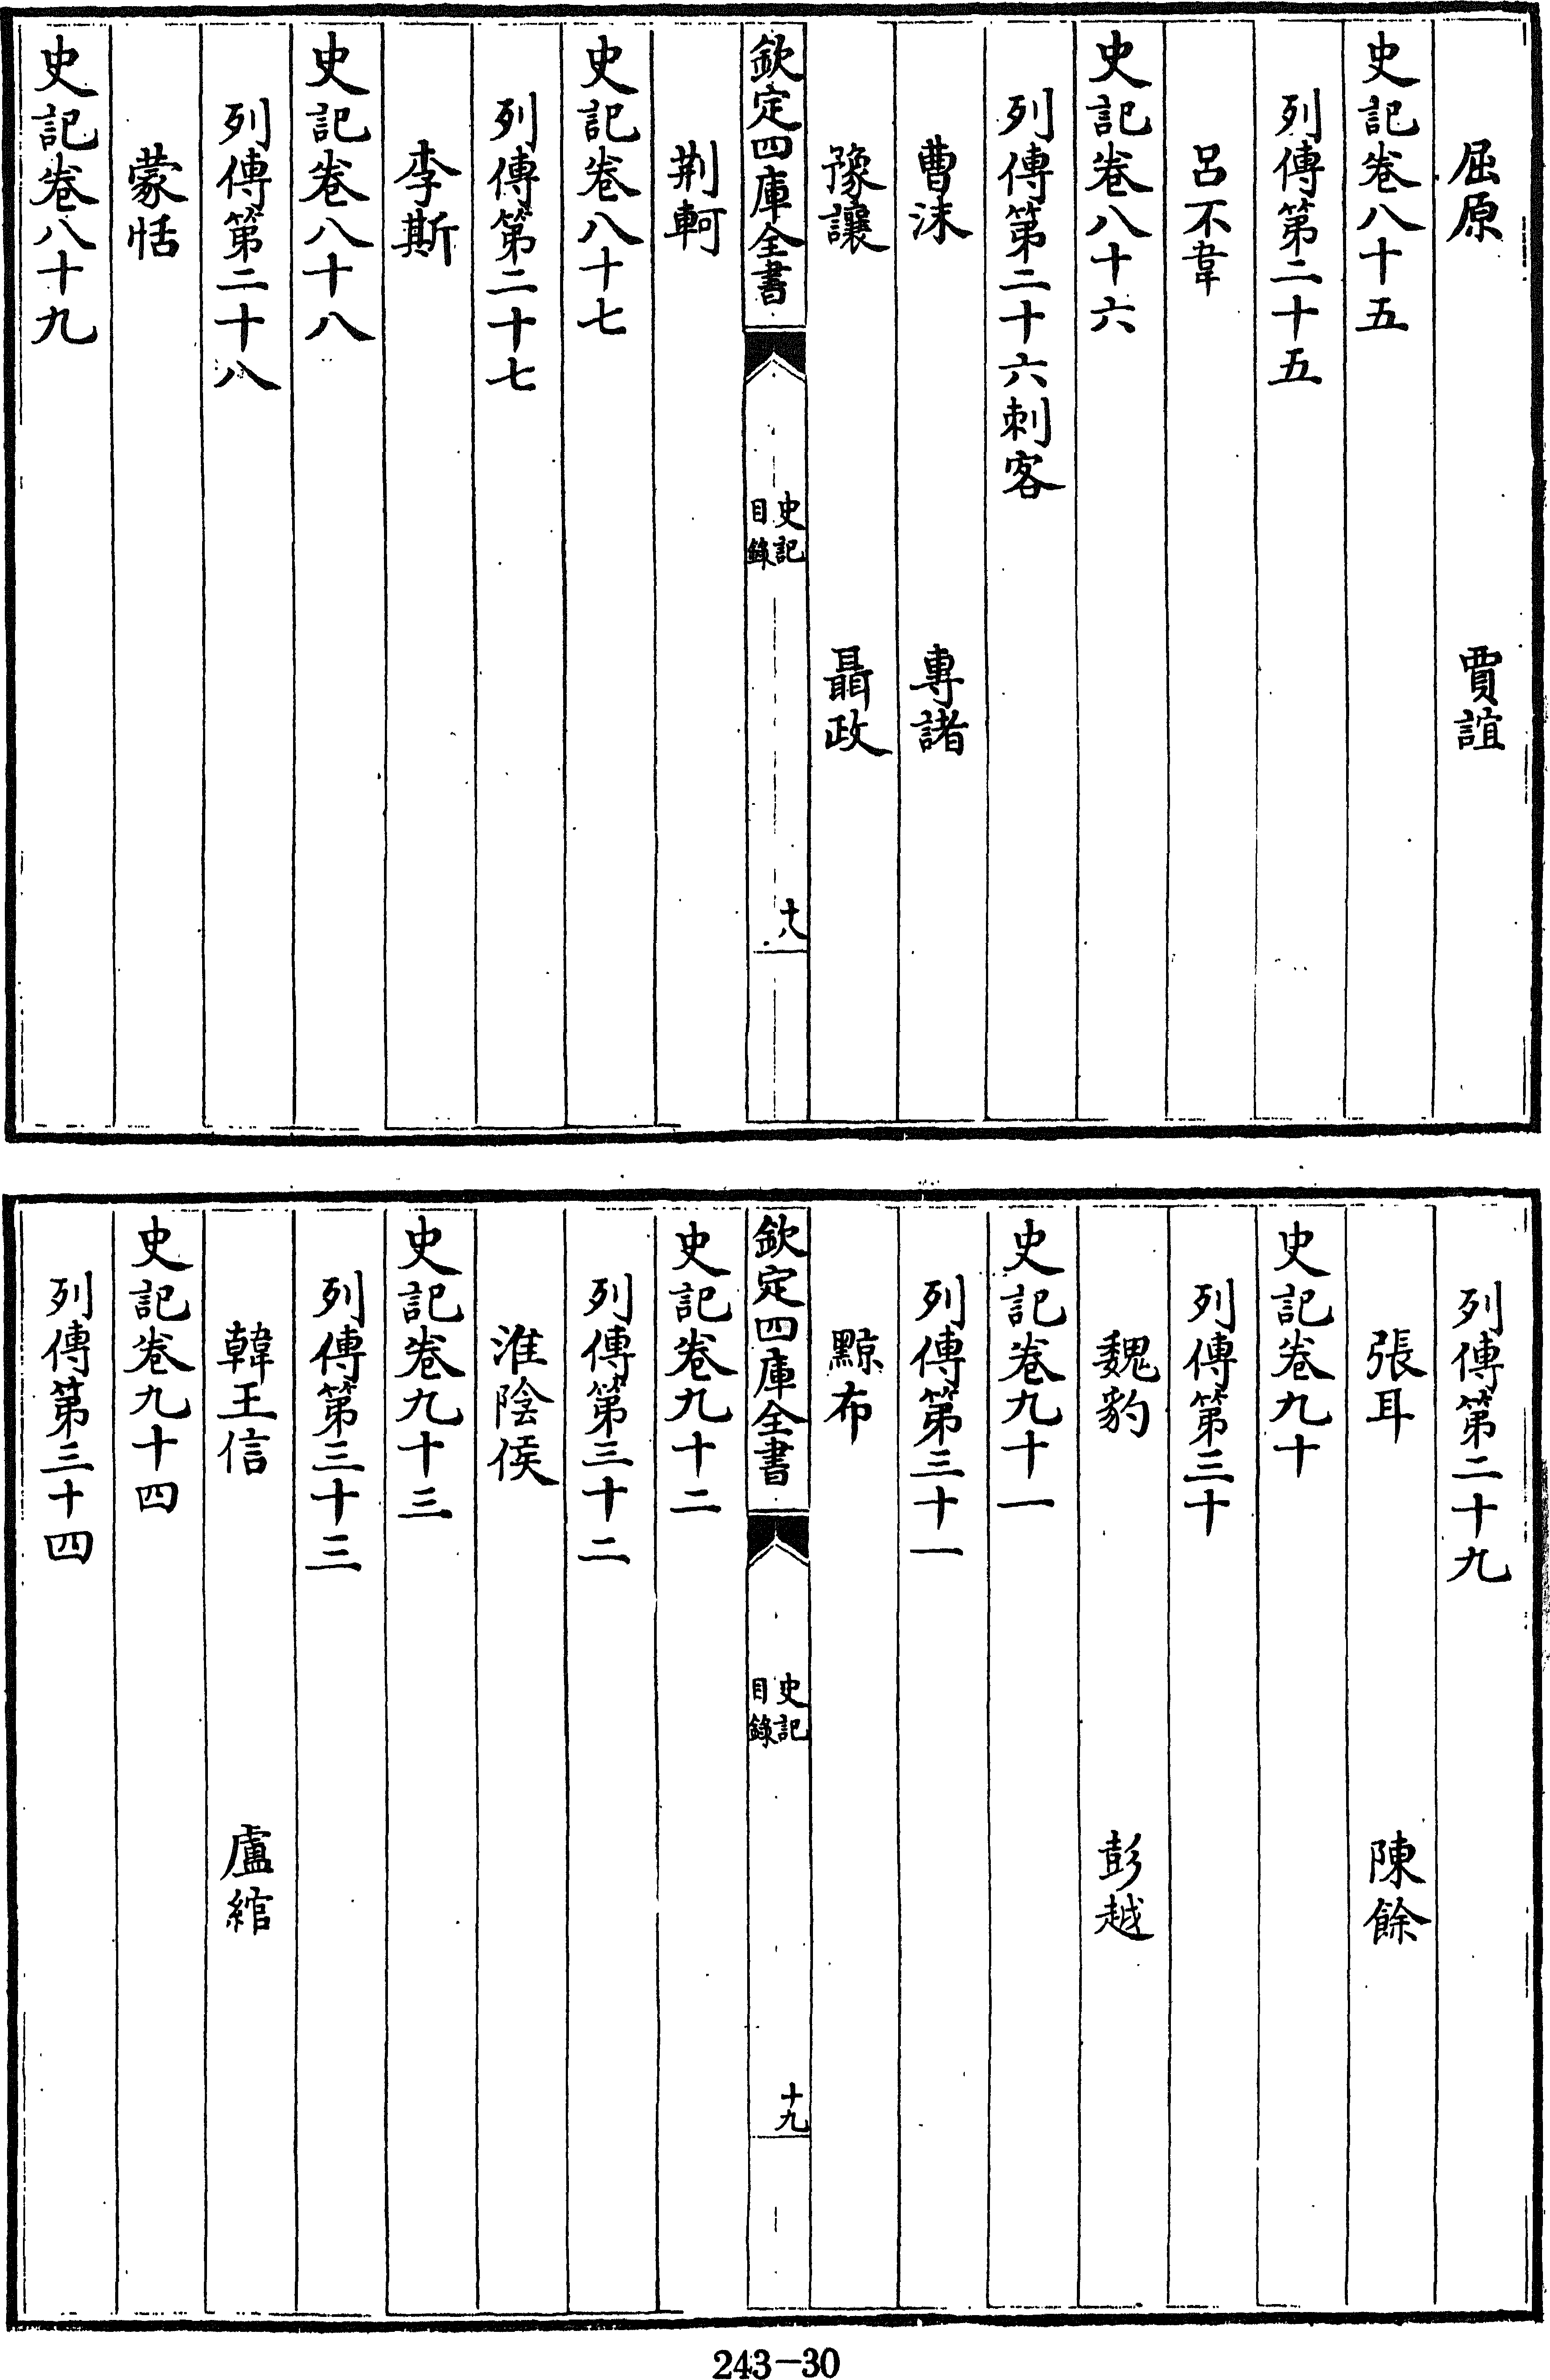 屈原 賈誼
史記卷八十五
列傳第二十五
呂不韋
史記卷八十六
列傳第二十六刺客
曹沫 專諸
豫讓 聶政
欽定四庫全書 史記目錄 十八
荆軻
史記卷八十七
列傳第二十七
李斯
史記卷八十八
列傳第二十八
蒙恬
史記卷八十九
列傳第二十九
張耳 陳餘
史記卷九十
列傳第三十
魏豹 彭越
史記卷九十一
列傳第三十一
黥布
欽定四庫全書 史記目錄 十九
史記卷九十二
列傳第三十二
淮陰侯
史記卷九十三
列傳第三十三
韓王信 盧綰
史記卷九十四
列傳第三十四
243-30